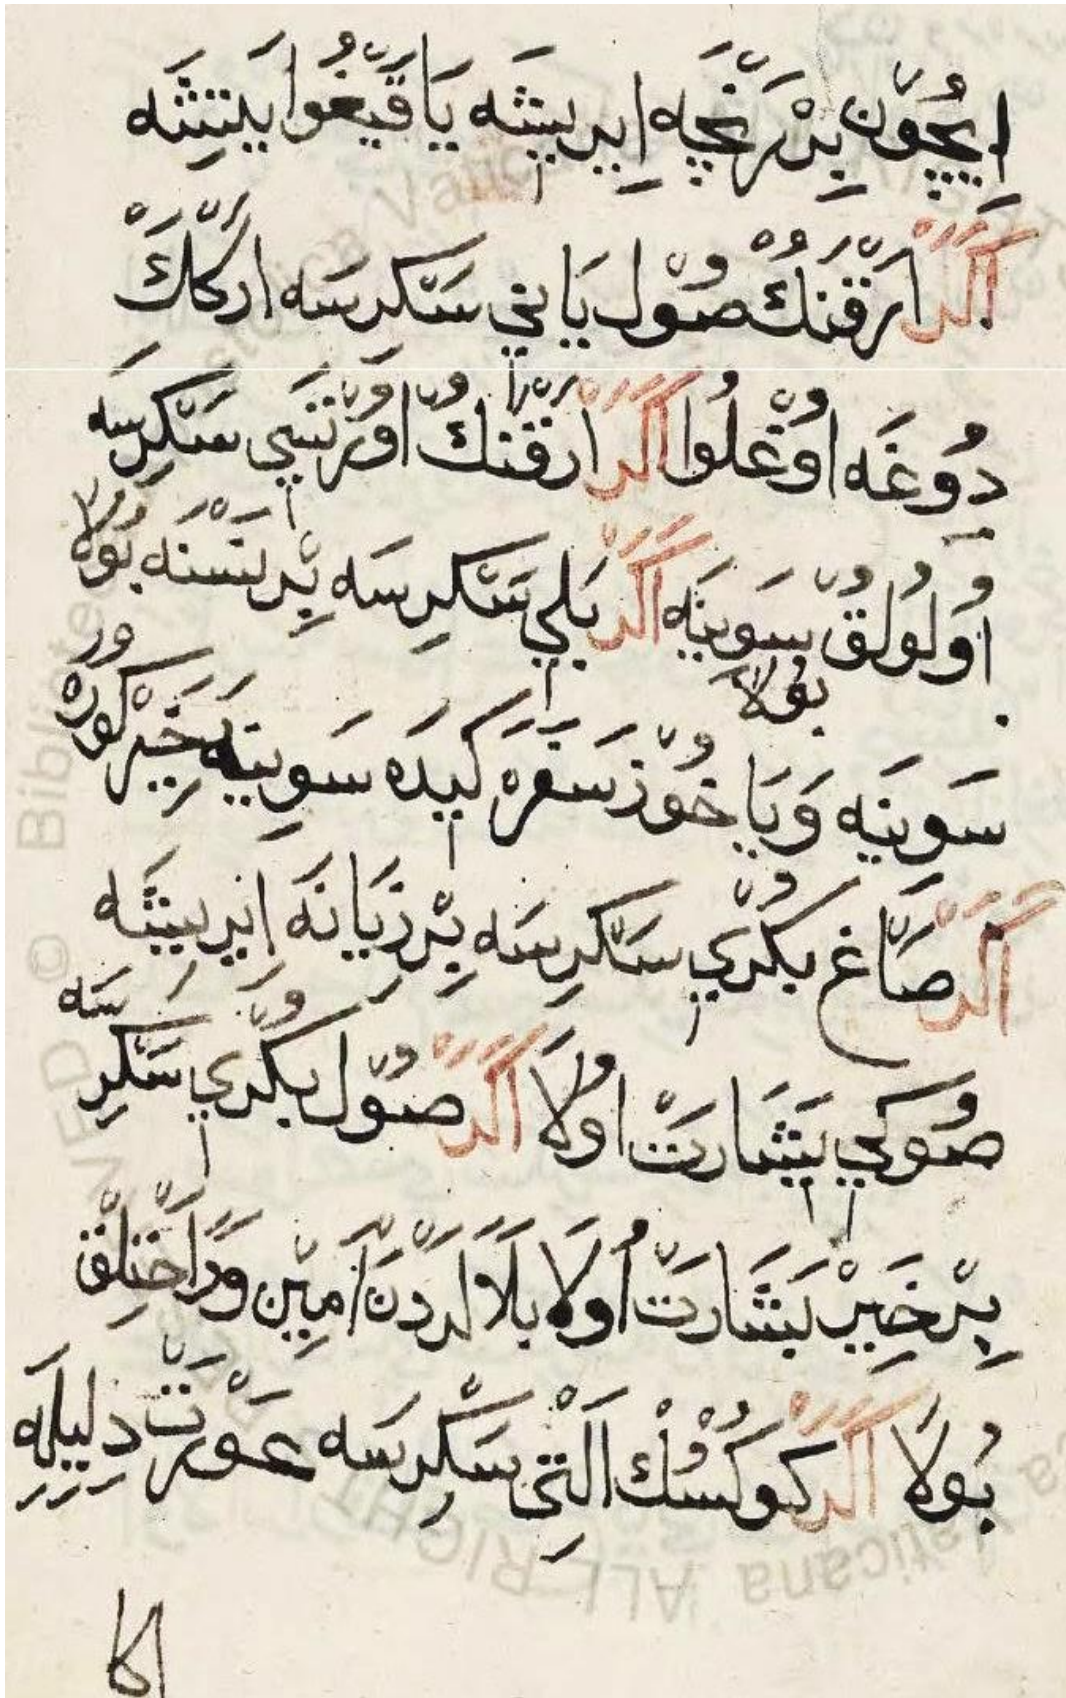 اِيچُوْن بِرْ رَنْجَه اِيرِيشَه يَا قَيْغُوا يَتِشَه
اَكَرْ اَرْقَنُكْ صُوْل يَانِي سَكِرسَه اَركَكْ
دُوغَه اوْغلُوا اَكَرْ ارْقَنُكْ اوُرْتَسِي سَكِرسَه
اُولُولُقْ سَوِينَه اَكَرْ بَلِي سَكِرسَه بِرْ نَسْنَه بُولَا
بُولَا
سَوِينَه وَيَا خُوْذ سَفَرَه كَيدَه سَوِينَه خَيْر كُورَه
وَر
اَكَرْ صَاغ بُكْرِي سَكِرسَه بِرْ زِيَانَه اِيرِيشَه
صُوكِي بِشَارَتْ اُولَا اَكَرْ صُوْل بُكْرِي سَكِرسَه
بِرْ خَيِرْ بِشَارَتْ اُولَا بَلَالَردَنْ اَمِيْن وَرَاحَتْلِقْ
بُولَا اَكَرْ كُوكْسُكْ اَلْتِي سَكِرسَه عَوْرَتْ دِلِيلَه